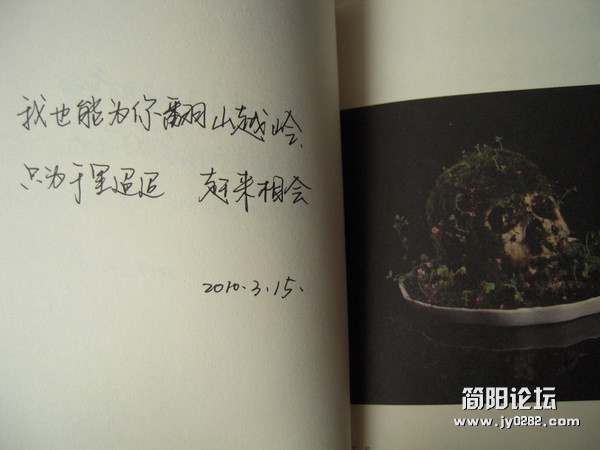 我也能为你翻山越岭、
只为千里迢迢 赶来相会
2010.3.15.
简阳论坛
www.jy0282.com